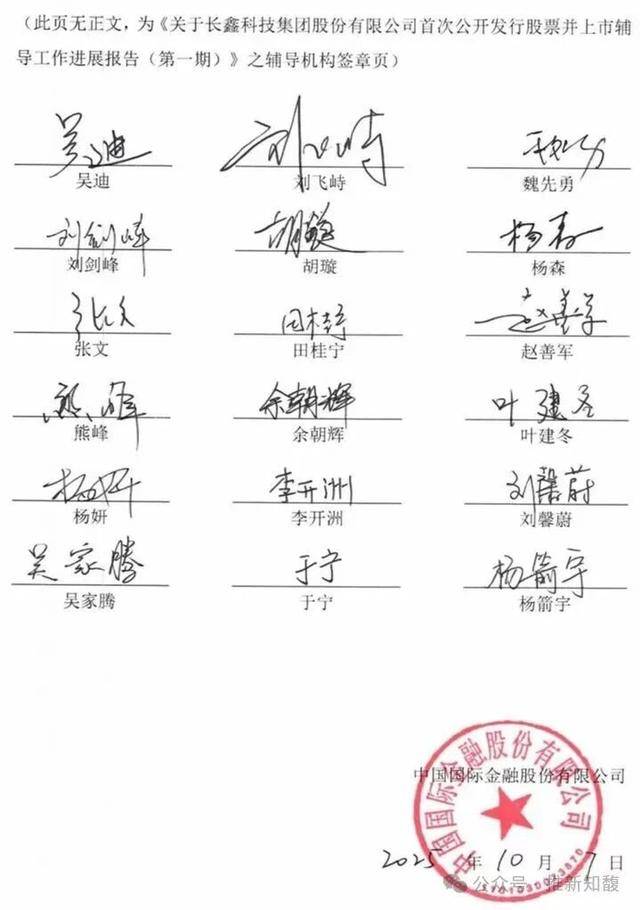 （此页无正文，为《关于长鑫科技集团股份有限公司首次公开发行股票并上市辅
导工作进展报告（第一期）》之辅导机构签章页）
吴迪 刘飞峙 魏先勇
吴迪 刘飞峙 魏先勇
刘剑峰 胡璇 杨森
刘剑峰 胡璇 杨森
张文 田桂宁 赵善军
张文 田桂宁 赵善军
熊峰 余朝辉 叶建冬
熊峰 余朝辉 叶建冬
杨妍 李开洲 刘馨蔚
杨妍 李开洲 刘馨蔚
吴家腾 于宁 杨箭宇
吴家腾 于宁 杨箭宇
中国国际金融股份有限公司
中国国际金融股份有限公司
2025 年 10 月 7 日
公众号 · 推新知馥